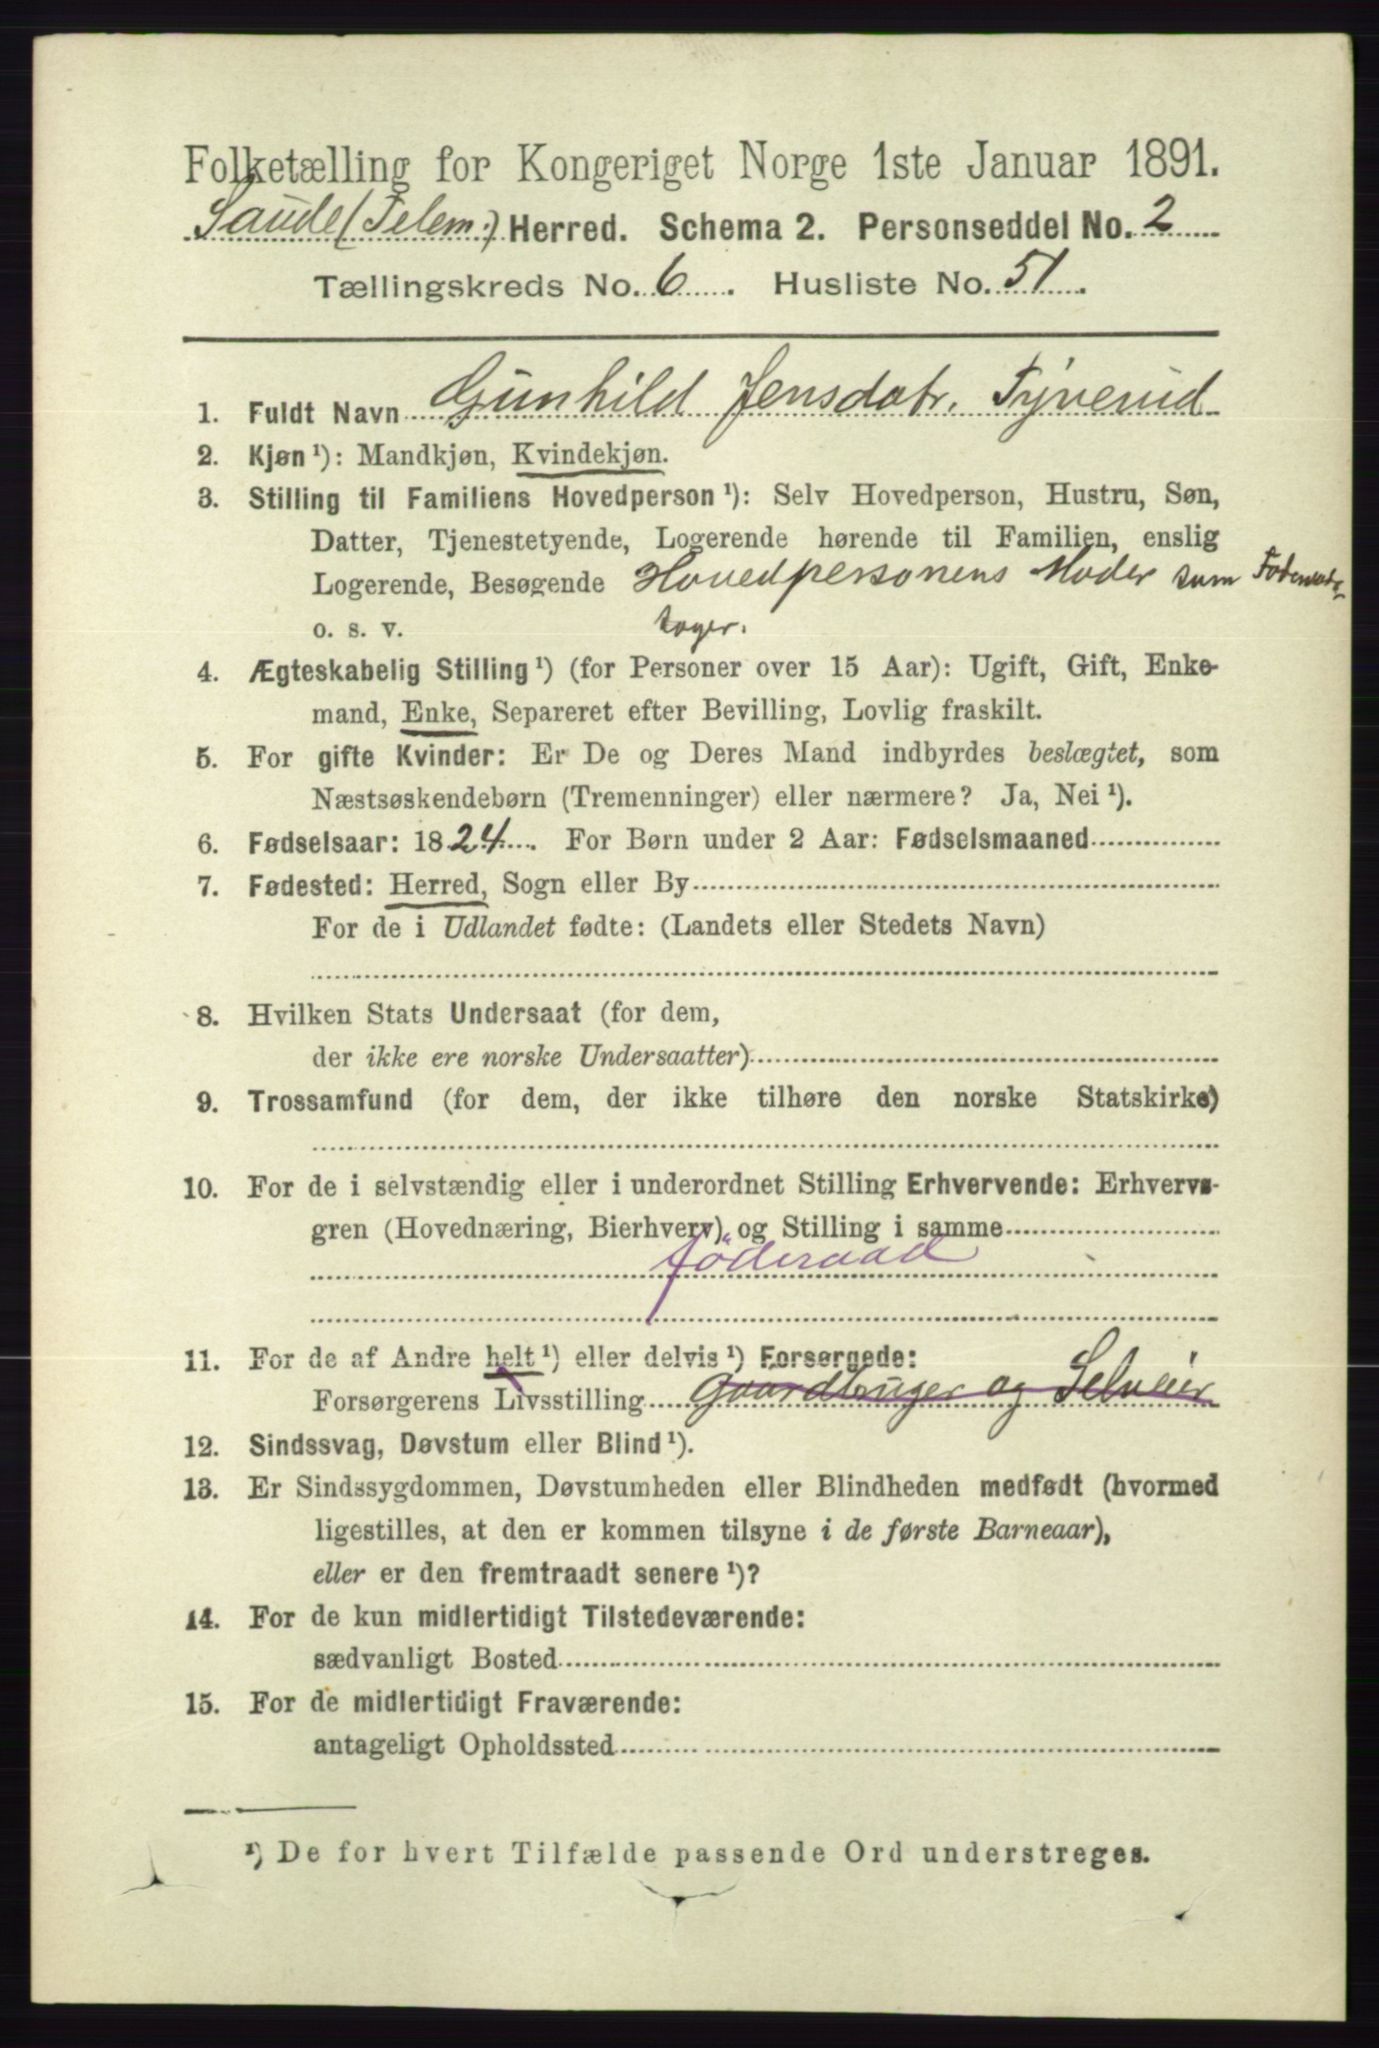 Folketælling for Kongeriget Norge 1ste Januar 1891.
Saude (Telem:) Herred. Schema 2. Personseddel No. 2
Tællingskreds No. 6. Husliste No. 51.
1. Fuldt Navn Gunhild Jensdatr. Tyverud
2. Kjøn ¹): Mandkjøn, Kvindekjøn.
3. Stilling til Familiens Hovedperson ¹): Selv Hovedperson, Hustru, Søn,
Datter, Tjenestetyende, Logerende hørende til Familien, enslig
Logerende, Besøgende Hovedpersonens Moder som Føderaads-
o. s. v. tager.
4. Ægteskabelig Stilling ¹) (for Personer over 15 Aar): Ugift, Gift, Enke-
mand, Enke, Separeret efter Bevilling, Lovlig fraskilt.
5. For gifte Kvinder: Er De og Deres Mand indbyrdes beslægtet, som
Næstsøskendebørn (Tremenninger) eller nærmere? Ja, Nei ¹).
6. Fødselsaar: 1824. For Børn under 2 Aar: Fødselsmaaned
7. Fødested: Herred, Sogn eller By
For de i Udlandet fødte: (Landets eller Stedets Navn)
8. Hvilken Stats Undersaat (for dem,
der ikke ere norske Undersaatter)
9. Trossamfund (for dem, der ikke tilhøre den norske Statskirke)
10. For de i selvstændig eller i underordnet Stilling Erhvervende: Erhvervs-
gren (Hovednæring, Bierhverv) og Stilling i samme
föderaad
11. For de af Andre helt ¹) eller delvis ¹) Forsørgede:
Forsørgerens Livsstilling Gaardbruger og Selveier
12. Sindssvag, Døvstum eller Blind ¹).
13. Er Sindssygdommen, Døvstumheden eller Blindheden medfødt (hvormed
ligestilles, at den er kommen tilsyne i de første Barneaar),
eller er den fremtraadt senere ¹)?
14. For de kun midlertidigt Tilstedeværende:
sædvanligt Bosted
15. For de midlertidigt Fraværende:
antageligt Opholdssted
¹) De for hvert Tilfælde passende Ord understreges.